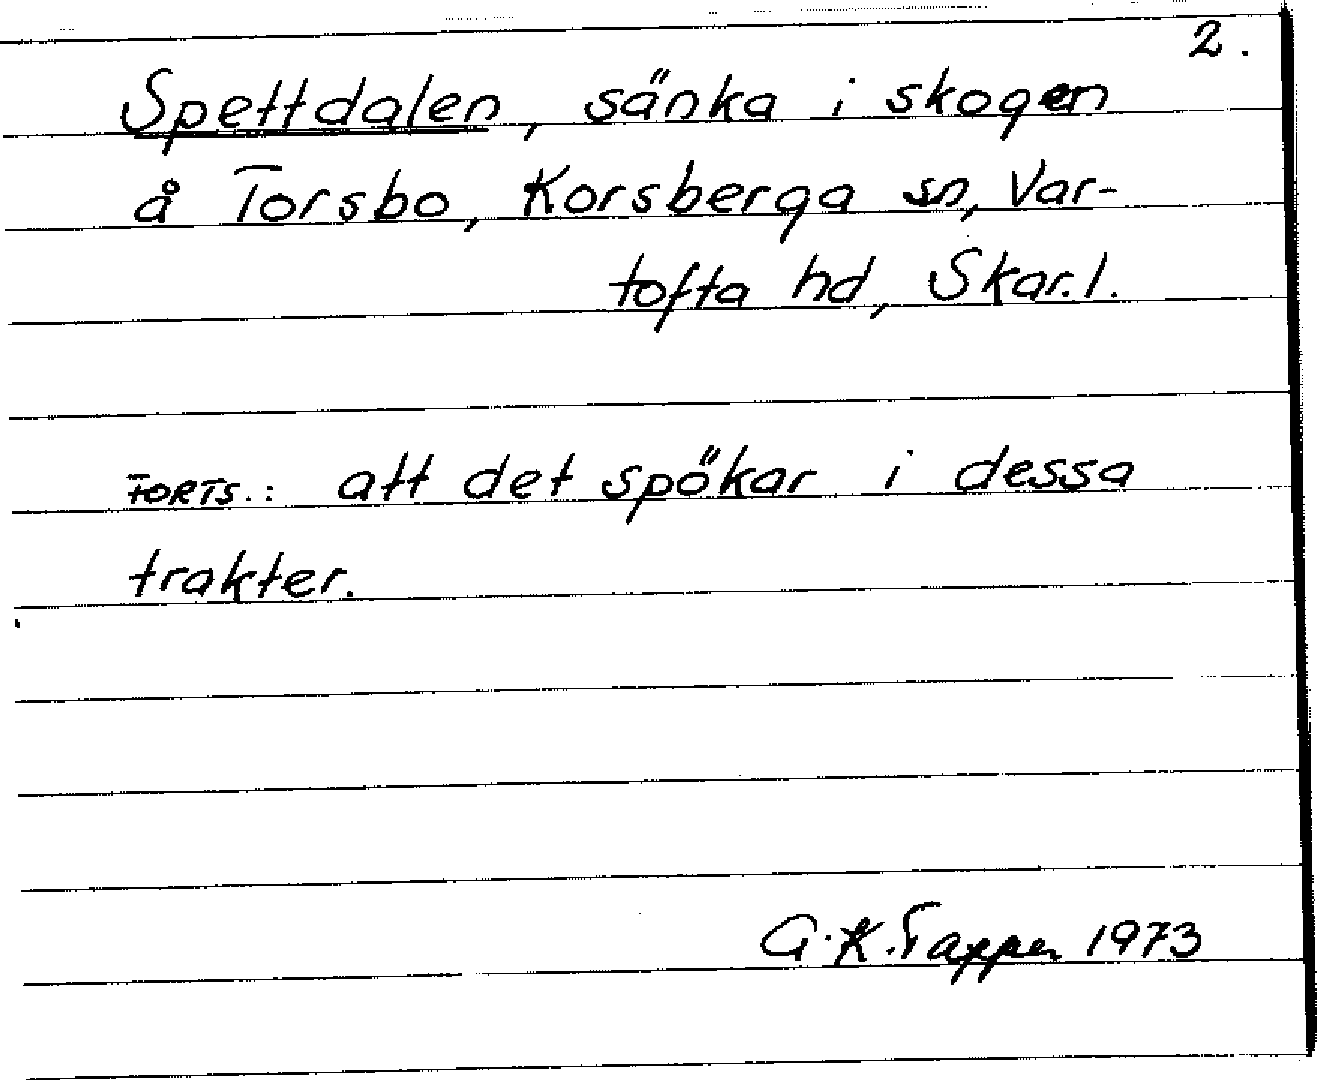 2.
Spettdalen, sänka i skogen
å Torsbo, Korsberga sn, Var-
tofta hd, Skar.l.
FORTS.: att det spökar i dessa
trakter.
G.K. Tapper 1973